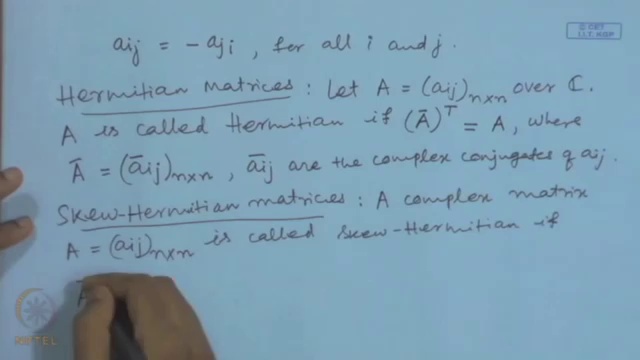 aij = -aji , for all i and j.
© CET
I.I.T. KGP
Hermitian Matrices : Let A = (aij)n×n over ℂ.
A is called Hermitian if (Ā)ᵀ = A, where
Ā = (āij)n×n , āij are the complex conjugates of aij.
Skew-Hermitian matrices : A complex matrix
A = (aij)n×n is called Skew-Hermitian if
NPTEL